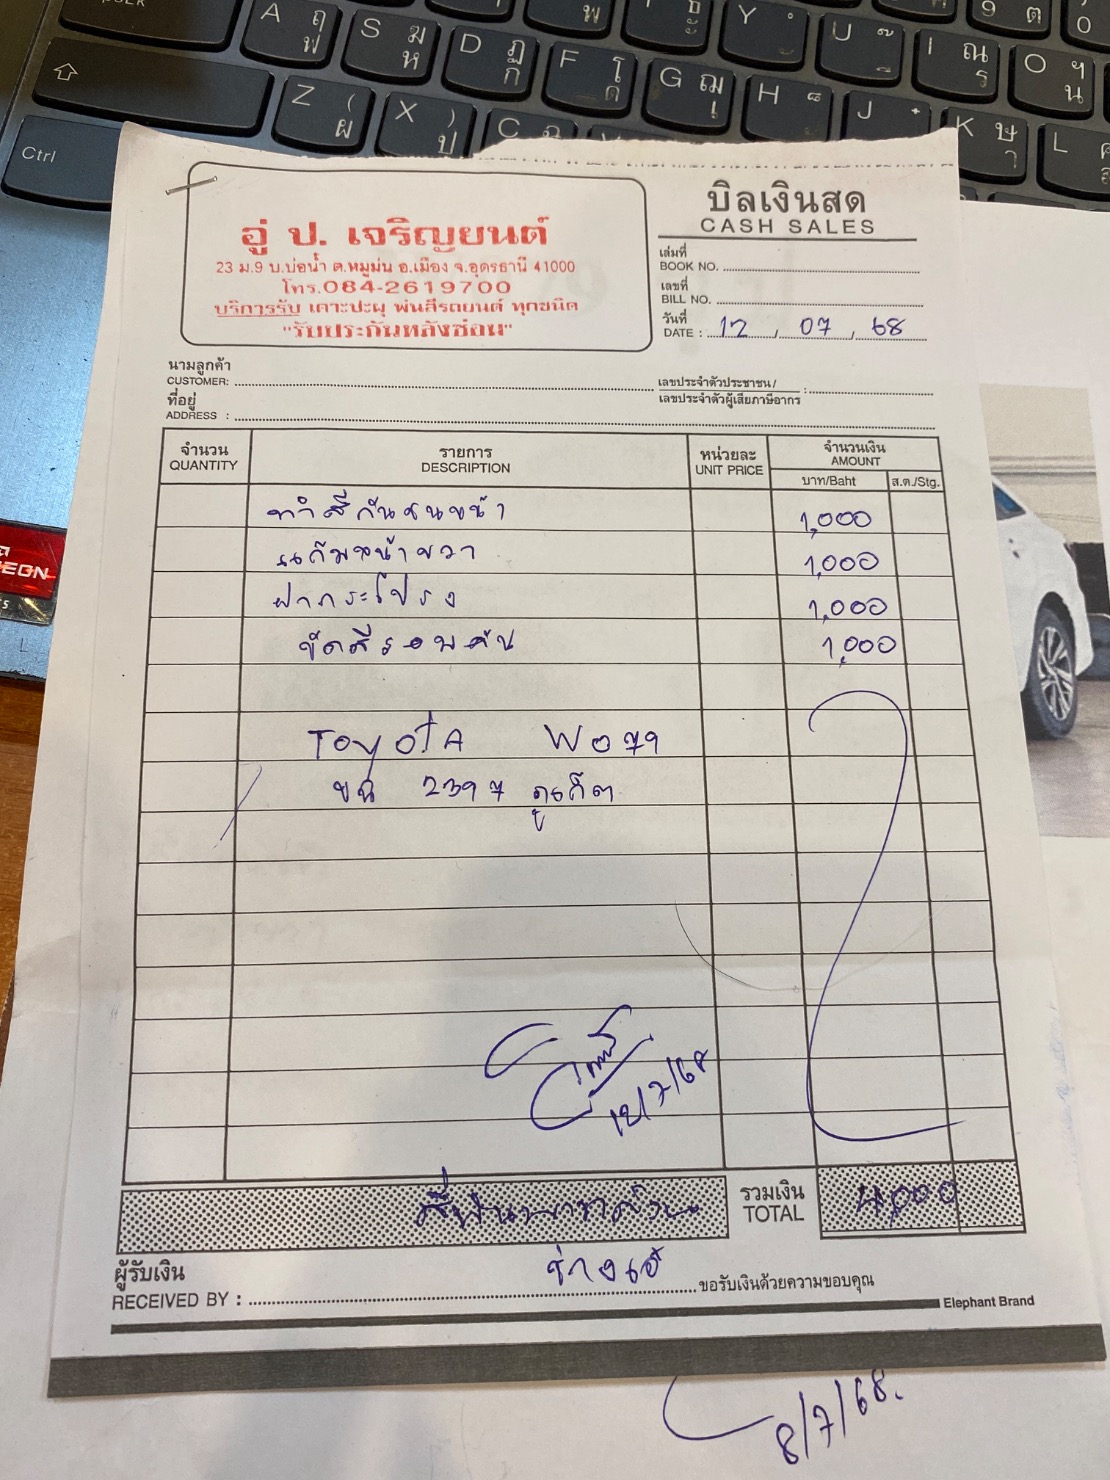 อู่ ป. เจริญยนต์
23 ม.9 บ.บ่อน้ำ ต.หมูม่น อ.เมือง จ.อุดรธานี 41000
โทร.084-2619700
บริการรับ เคาะปะผุ พ่นสีรถยนต์ ทุกชนิด
"รับประกันหลังซ่อม"
บิลเงินสด
CASH SALES
เล่มที่
BOOK NO.
เลขที่
BILL NO.
วันที่
DATE : 12 , 07 , 68
นามลูกค้า
CUSTOMER:
เลขประจำตัวประชาชน/ :
เลขประจำตัวผู้เสียภาษีอากร
ที่อยู่
ADDRESS :
จำนวน รายการ หน่วยละ จำนวนเงิน
QUANTITY DESCRIPTION UNIT PRICE AMOUNT
บาท/Baht ส.ต./Stg.
ทำสีกันชนหน้า 1,000
แก้มหน้าขวา 1,000
ฝากระโปรง 1,000
ขัดสีรอบคัน 1,000
TOYOTA
ขฉ 2397 ภูเก็ต
12/7/68
รวมเงิน
TOTAL 4,000
สี่พันบาทถ้วน
ผู้รับเงิน
RECEIVED BY : ช่างเอ๋ ขอรับเงินด้วยความขอบคุณ
Elephant Brand
8/7/68.
Ctrl
A ฤ ฟ
S ฆ ห
D ฏ ก
F โ ด
G ฌ เ
H
J
K ษ า
L
Z ( ผ
X ) ป
C ฉ
Y
U
I ณ ร
O ฯ น